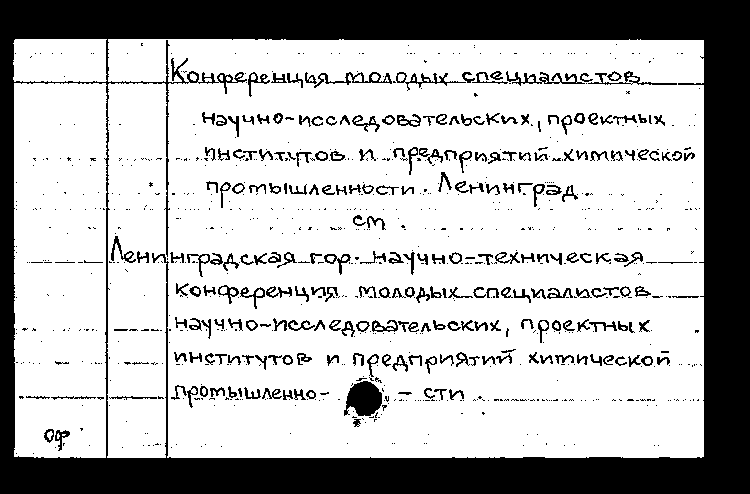 Конференция молодых специалистов
научно-исследовательских, проектных
институтов и предприятий химической
промышленности. Ленинград.
см
Ленинградская гор. научно-техническая
конференция молодых специалистов
научно-исследовательских, проектных
институтов и предприятий химической
промышленно- - сти.
оф